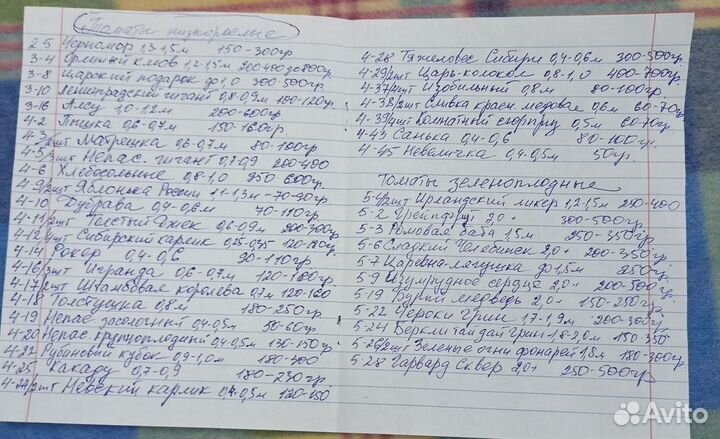 Томаты низкорослые
2-5 Черномор 1,3-1,5м 150-300гр.
3-4 Орлиный клюв 1,2-1,5м 200-400 до 800гр.
3-8 Царский подарок до 1,0 300-500гр.
3-10 Ленинградский гигант 0,8-0,9м 100-120гр.
3-16 Алсу 1,0-1,2м 200-600гр.
4-2 Пышка 0,6-0,7м 150-160гр.
4-3/2шт Матрешка 0,6-0,7м 80-100гр
4-5/3шт Непас. гигант 0,7-0,9 200-400
4-6 Хлебосольные 0,8-1,0 250-600гр.
4-9/2шт Яблонька России 1,1-1,3м-70-90гр.
4-10 Дубрава 0,4-0,6м 70-110гр.
4-11/2шт Толстый Джек 0,6-0,9м 200-300гр.
4-12/4шт Сибирский карлик 0,25-0,45 120-180гр.
4-14 Рокер 0,4-0,6 90-110гр.
4-16/3шт Игранда 0,6-0,7м 120-180гр.
4-17/2шт Штамбовая королева 0,7м 120-160
4-18 Толстушка 0,8м 180-250гр.
4-19 Непас засолочный 0,4-0,5м 50-60гр.
4-20 Непас крупноплодный 0,4-0,5м 130-150гр.
4-22 Рубиновый кубок 0,9-1,0м 180-300
4-25 Какаду 0,7-0,9 180-230гр.
4-27/2шт Невский карлик 0,4-0,5м 120-150
4-28 Тяжеловес Сибири 0,4-0,6м 300-500гр.
4-29/2шт Царь-колокол 0,8-1,0 400-700гр.
4-37/4шт Изобильный 0,8м 80-100гр.
4-38/2шт Сливка красн. медовая 0,6м 60-70гр.
4-39/4шт Комнатный сюрприз 0,5м 60-70гр.
4-43 Санька 0,4-0,6 80-100гр.
4-45 Невеличка 0,4-0,5м 50гр.
Томаты зеленоплодные
5-1/2шт Ирландский ликер 1,2-1,5м 200-400
5-2 Грейпфрут 2,0+ 300-500гр.
5-3 Ромовая баба 1,5м 250-350гр.
5-6 Сладкий Челябинск 2,0+ 200-350гр.
5-7 Царевна-лягушка до 1,5м 250гр.
5-9 Изумрудное сердце 2,0+ 200-500гр.
5-19 Бурый медведь 2,0+ 150-250гр.
5-22 Чероки Грин 1,7-1,9м 200-300гр.
5-24 Беркли тай дай грин 1,8-2,0м 150-350
5-26/2шт Зеленые огни фонарей 1,8м 180-300гр.
5-28 Гарвард Сквер 2,0+ 250-500гр
Avito